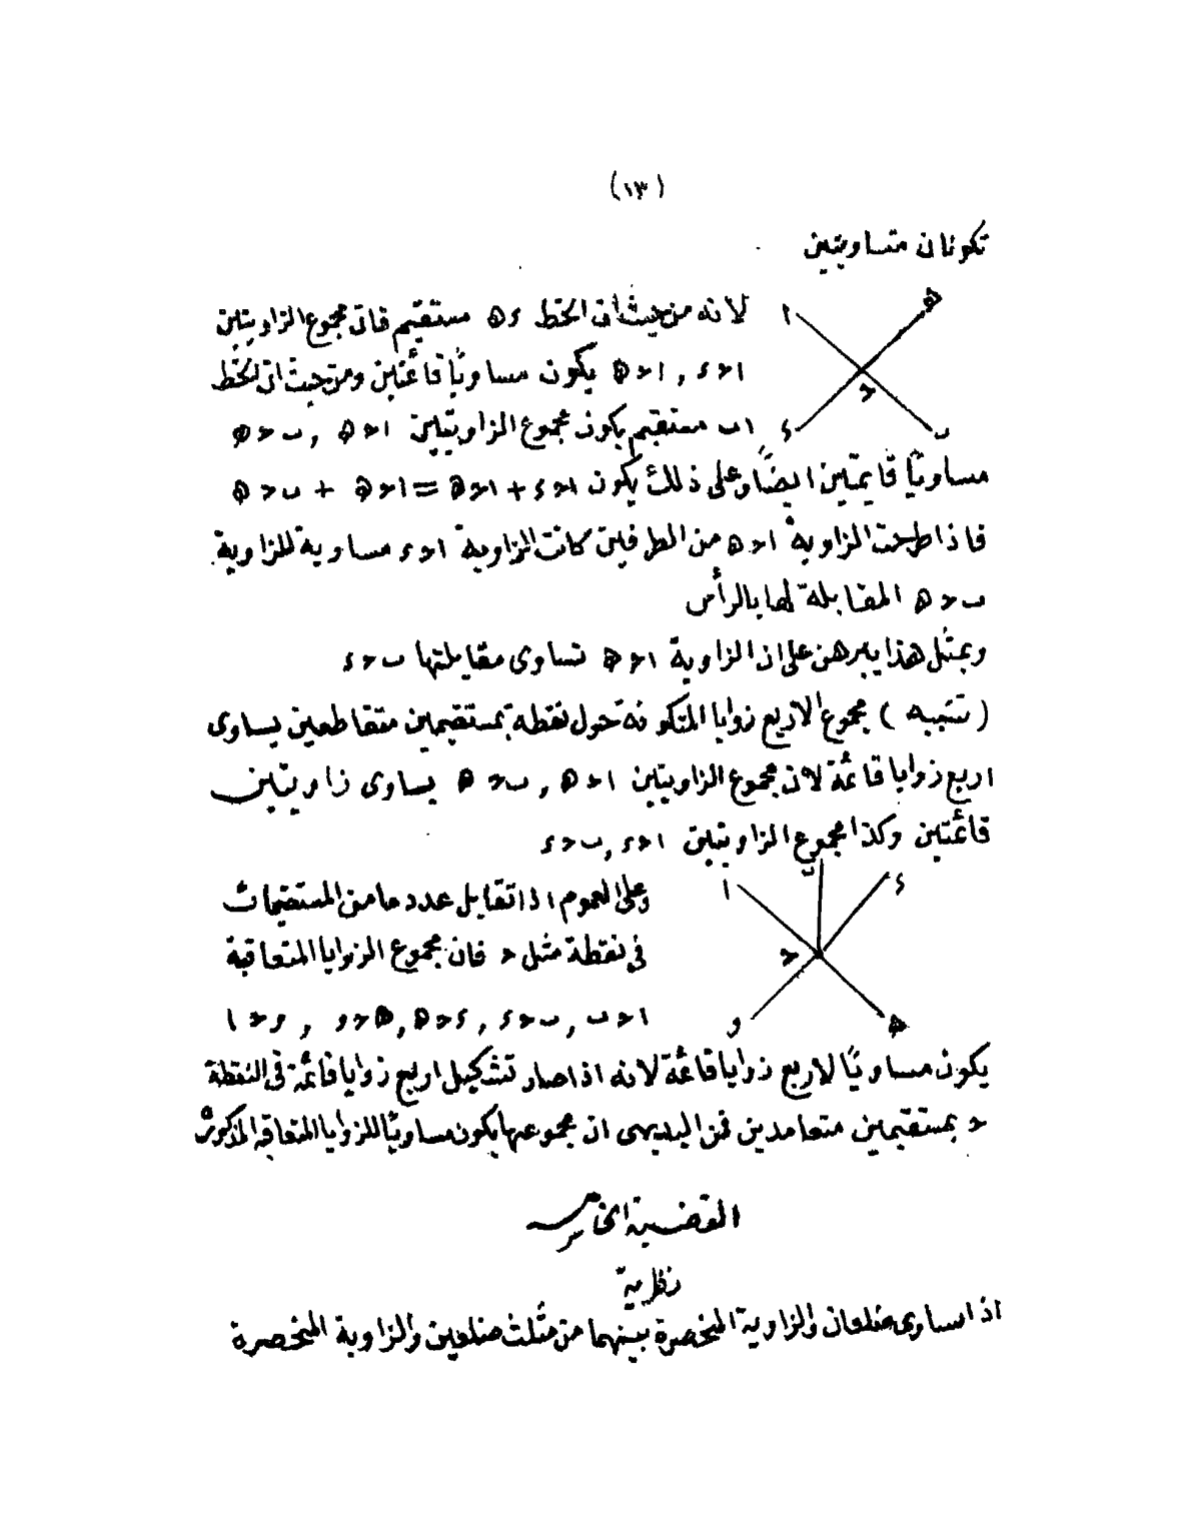 (١٣)
تكونان متساويتين
لانه من حيث ان الخط ء ه مستقيم فان مجموع الزاويتين
ا ح ء , ا ح ه يكون مساويًا قائمتين ومن حيث ان الخط
ا ب مستقيم يكون مجموع الزاويتين ا ح ه , ب ح ه
مساويًا قايمتين ايضًا وعلى ذلك يكون ا ح ء + ا ح ه = ا ح ه + ب ح ه
فاذا طرحت الزاوية ا ح ه من الطرفين كانت الزاوية ا ح ء مساوية للزاوية
ب ح ه المقابلة لها بالرأس
وبمثل هذا يبرهن على ان الزاوية ا ح ه تساوى مقابلتها ب ح ء
( نتيجه ) مجموع الاربع زوايا المتكونة حول نقطة بمستقيمين متقاطعين يساوى
اربع زوايا قائمة لان مجموع الزاويتين ا ح ه , ب ح ه يساوى زاويتين
قائمتين وكذا مجموع الزاويتين ا ح ء , ب ح ء
وعلى العموم اذا تقابل عدد ما من المستقيمات
فى نقطة مثل ح فان مجموع الزوايا المتعاقبة
ا ح ب , ب ح ء , ء ح ه , ه ح و , و ح ا
يكون مساويًا لاربع زوايا قائمة لانه اذا صار تشكيل اربع زوايا قائمة فى النقطة
ح بمستقيمين متعامدين فمن البديهى ان مجموعها يكون مساويًا للزوايا المتعاقبه المذكورة
القضية الخامسه
نظرية
اذا ساوى ضلعان والزاوية المنحصرة بينهما من مثلث ضلعين والزاوية المنحصرة
ا
ه
ح
ء
ب
ا
ب
ء
ح
و
ه